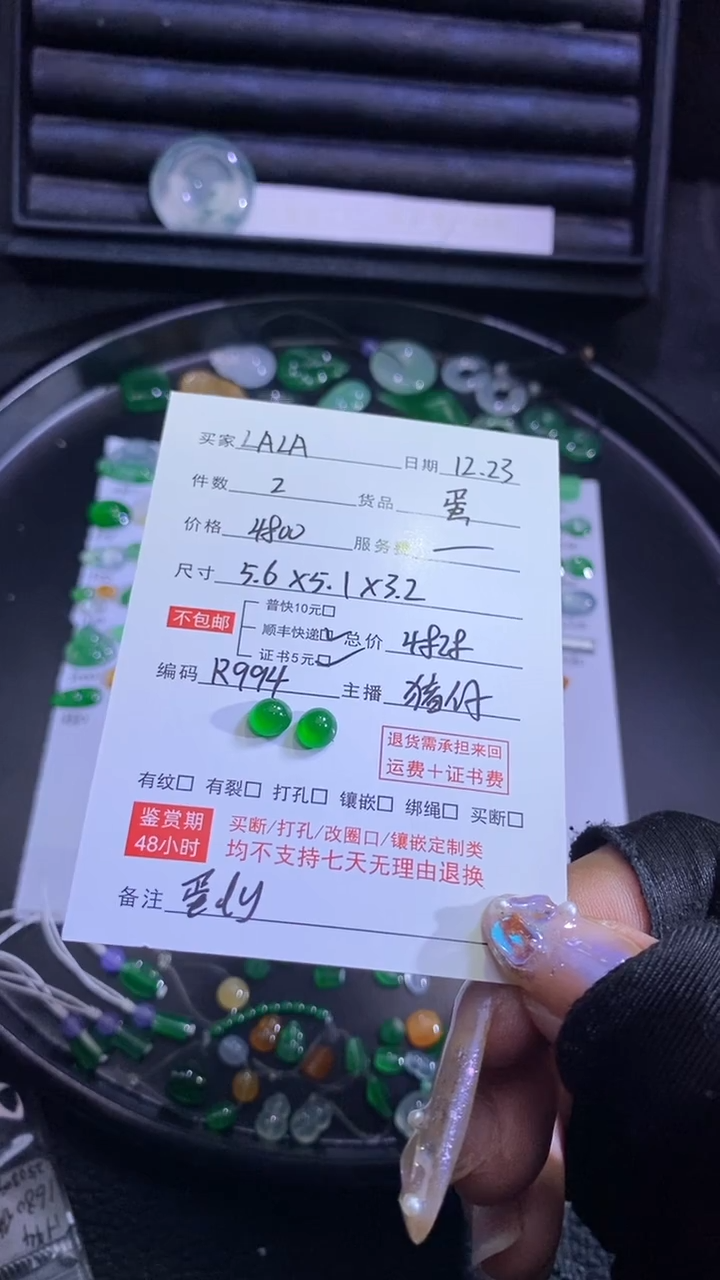 买家 LALA 日期 12.23
件数 2 货品 蛋
价格 4800 服务费 —
尺寸 5.6×5.1×3.2
不包邮
普快10元□
顺丰快递☑ 总价 4828
证书5元☑
编码 R994 主播
退货需承担来回
运费+证书费
有纹□ 有裂□ 打孔□ 镶嵌□ 绑绳□ 买断□
鉴赏期
48小时
买断/打孔/改圈口/镶嵌定制类
均不支持七天无理由退换
备注 蛋dy